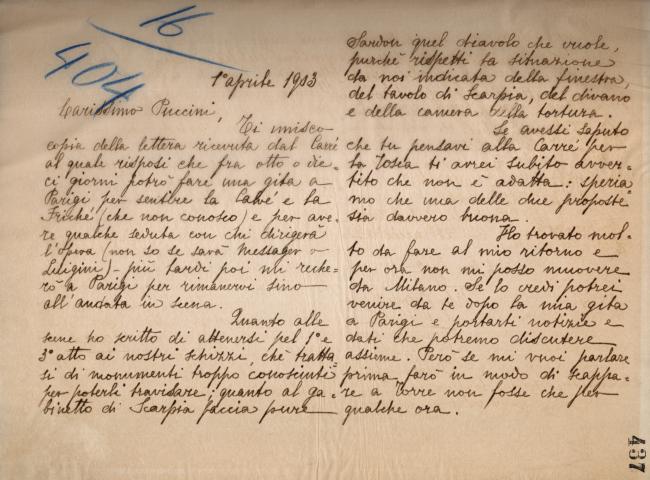 16
404
1° aprile 1903
Carissimo Puccini,
Ti unisco
copia della lettera ricevuta dal Carré
al quale risposi che fra otto o die=
ci giorni potrò fare una gita a
Parigi per sentire la Carré e la
Friché (che non conosco) e per ave=
re qualche seduta con chi dirigerà
l'opera (non so se sarà Messager o
Luigini) - più tardi poi mi reche=
rò a Parigi per rimanervi sino
all'andata in scena.
Quanto alle
scene ho scritto di attenersi pel 1° e
3° atto ai nostri schizzi, chè tratta=
si di monumenti troppo conosciuti
per poterli travisare; quanto al ga=
binetto di Scarpia faccia pure
Sardou quel diavolo che vuole,
purchè rispetti la situazione
da noi indicata della finestra,
del tavolo di Scarpia, del divano
e della camera della tortura.
Se avessi saputo
che tu pensavi alla Carré per
la Tosca ti avrei subito avver=
tito che non è adatta: speria
mo che una delle due proposte
sia davvero buona.
Ho trovato mol=
to da fare al mio ritorno e
per ora non mi posso muovere
da Milano. Se lo credi potrei
venire da te dopo la mia gita
a Parigi e portarti notizie e
dati che potremo discutere
assieme. Però se mi vuoi parlare
prima farò in modo di scappa=
re a Torre non fosse che per
qualche ora.
437